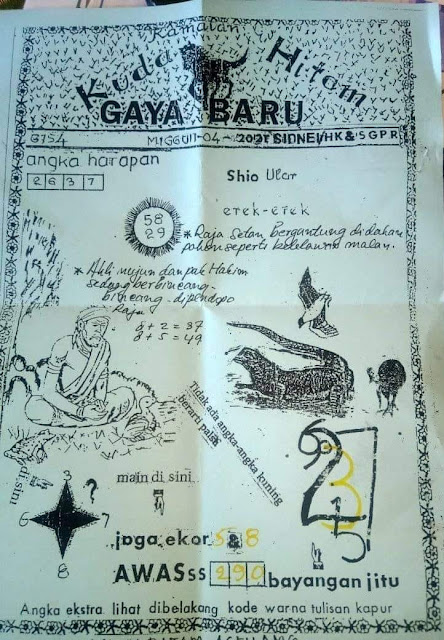 Ramalan
Kuda Hitam
GAYA BARU
G754 MIGGU11-04-2021 SIDNEI/HK&SGPR
angka harapan
2 6 3 7
Shio Ular
erek-erek
58
29
*Raja Setan Bergantung didahan
pohon seperti kelelawar malam.
*Ahli nujum dan pak Hakim
sedang berbincang-
bincang dipendopo
Raja
8+2=37
8+5=49
Tidak ada angka-angka kuning
berarti palsu
di sini
main di sini
3
?
6
7
8
6
2
3
7
5
joga ekor 5&8
AWASss 290 bayangan jitu
Angka ekstra lihat dibelakang kode warna tulisan kapur